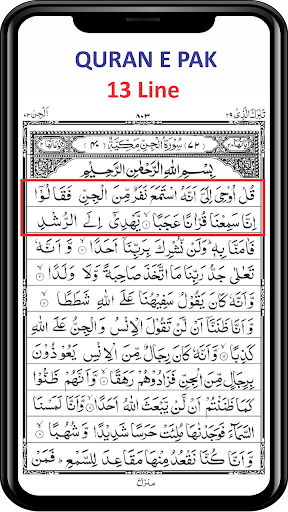 QURAN E PAK
13 Line
تَبٰرَكَ الَّذِیْ ٢٩
٨٠٣
اَلْجِنّ ٧٢
(٧٢) سُوْرَةُ الْجِنِّ مَكِّيَّةٌ (٤٠)
بِسْمِ اللّٰهِ الرَّحْمٰنِ الرَّحِيْمِ
قُلْ اُوْحِيَ اِلَيَّ اَنَّهُ اسْتَمَعَ نَفَرٌ مِّنَ الْجِنِّ فَقَالُوْٓا
اِنَّا سَمِعْنَا قُرْاٰنًا عَجَبًا ۙ يَّهْدِيْٓ اِلَى الرُّشْدِ
فَاٰمَنَّا بِهٖ ؕ وَلَنْ نُّشْرِكَ بِرَبِّنَآ اَحَدًا ۙ وَّاَنَّهٗ
تَعٰلٰى جَدُّ رَبِّنَا مَا اتَّخَذَ صَاحِبَةً وَّلَا وَلَدًا ۙ
وَّاَنَّهٗ كَانَ يَقُوْلُ سَفِيْهُنَا عَلَى اللّٰهِ شَطَطًا ۙ
وَّاَنَّا ظَنَنَّآ اَنْ لَّنْ تَقُوْلَ الْاِنْسُ وَالْجِنُّ عَلَى اللّٰهِ
كَذِبًا ۙ وَّاَنَّهٗ كَانَ رِجَالٌ مِّنَ الْاِنْسِ يَعُوْذُوْنَ
بِرِجَالٍ مِّنَ الْجِنِّ فَزَادُوْهُمْ رَهَقًا ۙ وَّاَنَّهُمْ ظَنُّوْا
كَمَا ظَنَنْتُمْ اَنْ لَّنْ يَّبْعَثَ اللّٰهُ اَحَدًا ۙ وَّاَنَّا لَمَسْنَا
السَّمَآءَ فَوَجَدْنٰهَا مُلِئَتْ حَرَسًا شَدِيْدًا وَّشُهُبًا ۙ
وَّاَنَّا كُنَّا نَقْعُدُ مِنْهَا مَقَاعِدَ لِلسَّمْعِ ؕ فَمَنْ